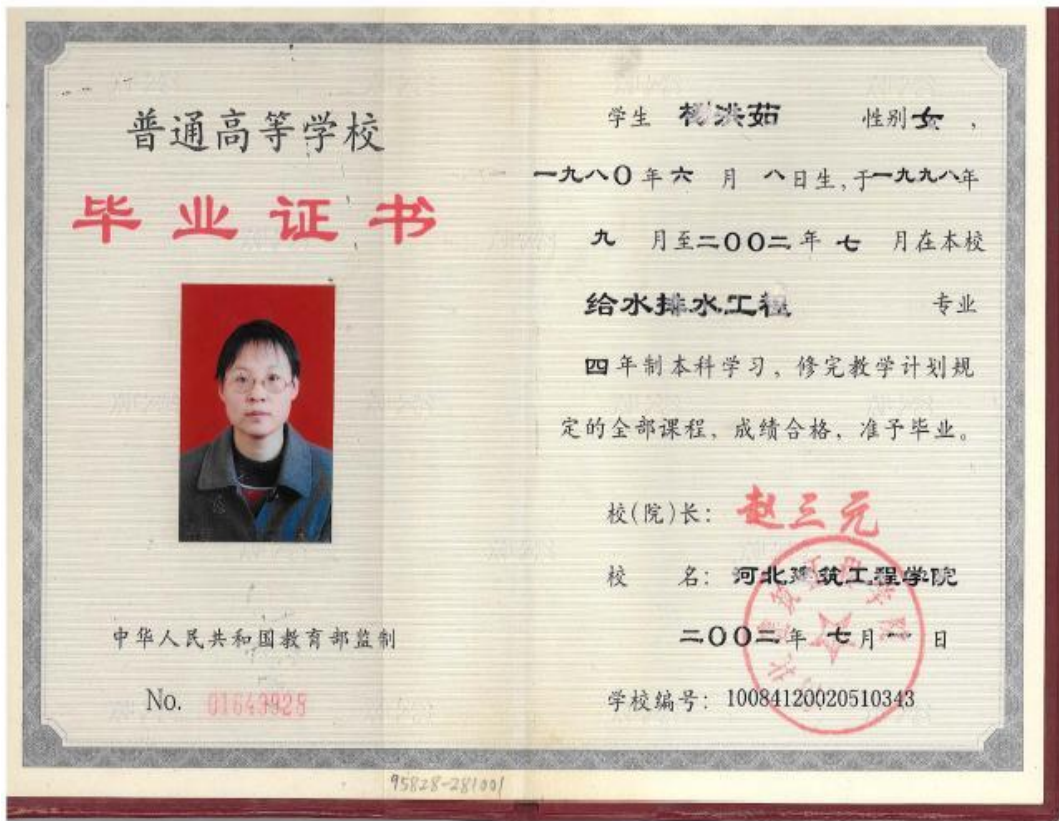 普通高等学校
毕业证书
中华人民共和国教育部监制
No. 01643928
学生 杨洪茹 性别 女，
一九八〇年六月八日生，于一九九八年
九月至二〇〇二年七月在本校
给水排水工程 专业
四年制本科学习，修完教学计划规
定的全部课程，成绩合格，准予毕业。
校(院)长：赵三元
校 名：河北建筑工程学院
二〇〇二年七月一日
学校编号：10084120020510343
95828-281001